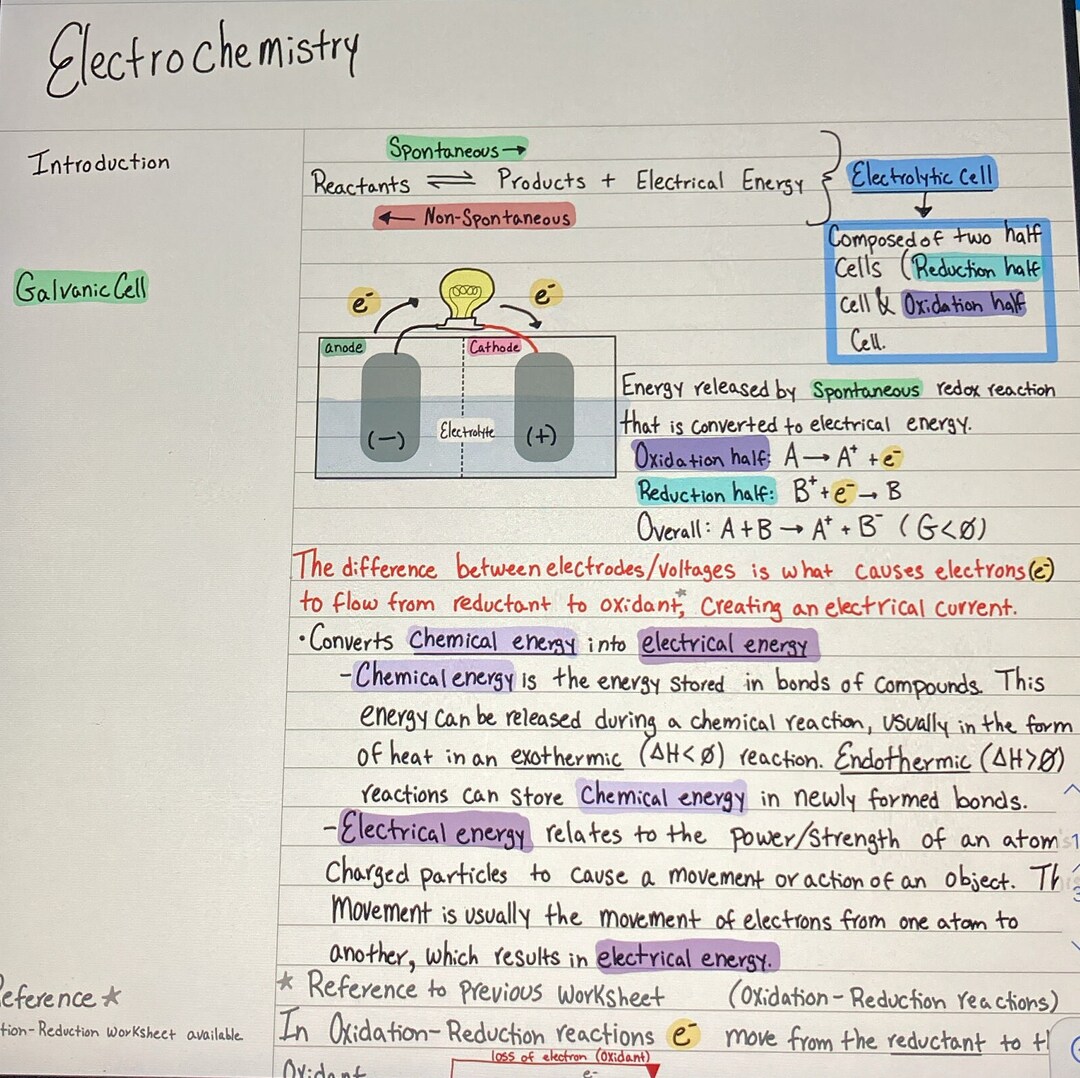 Electrochemistry
Introduction
Spontaneous →
Reactants ⇌ Products + Electrical Energy
← Non-Spontaneous
Electrolytic Cell
Composed of two half
Cells (Reduction half
cell & Oxidation half
Cell.
Galvanic Cell
e⁻
e⁻
anode
Cathode
(−)
Electrolyte
(+)
Energy released by Spontaneous redox reaction
that is converted to electrical energy.
Oxidation half: A → A⁺ + e⁻
Reduction half: B⁺ + e⁻ → B
Overall: A + B → A⁺ + B⁻ (G<Ø)
The difference between electrodes/voltages is what causes electrons (e⁻)
to flow from reductant to oxidant*, Creating an electrical current.
• Converts Chemical energy into electrical energy
- Chemical energy is the energy stored in bonds of compounds. This
energy can be released during a chemical reaction, usually in the form
of heat in an exothermic (ΔH<Ø) reaction. Endothermic (ΔH>Ø)
reactions can store Chemical energy in newly formed bonds.
- Electrical energy relates to the power/strength of an atom's
Charged particles to cause a movement or action of an object.
Movement is usually the movement of electrons from one atom to
another, which results in electrical energy.
★ Reference to previous worksheet (Oxidation-Reduction reactions)
eference ★
tion-Reduction Worksheet available
In Oxidation-Reduction reactions e⁻ move from the reductant to
loss of electron (Oxidant)
Oxidant
e⁻